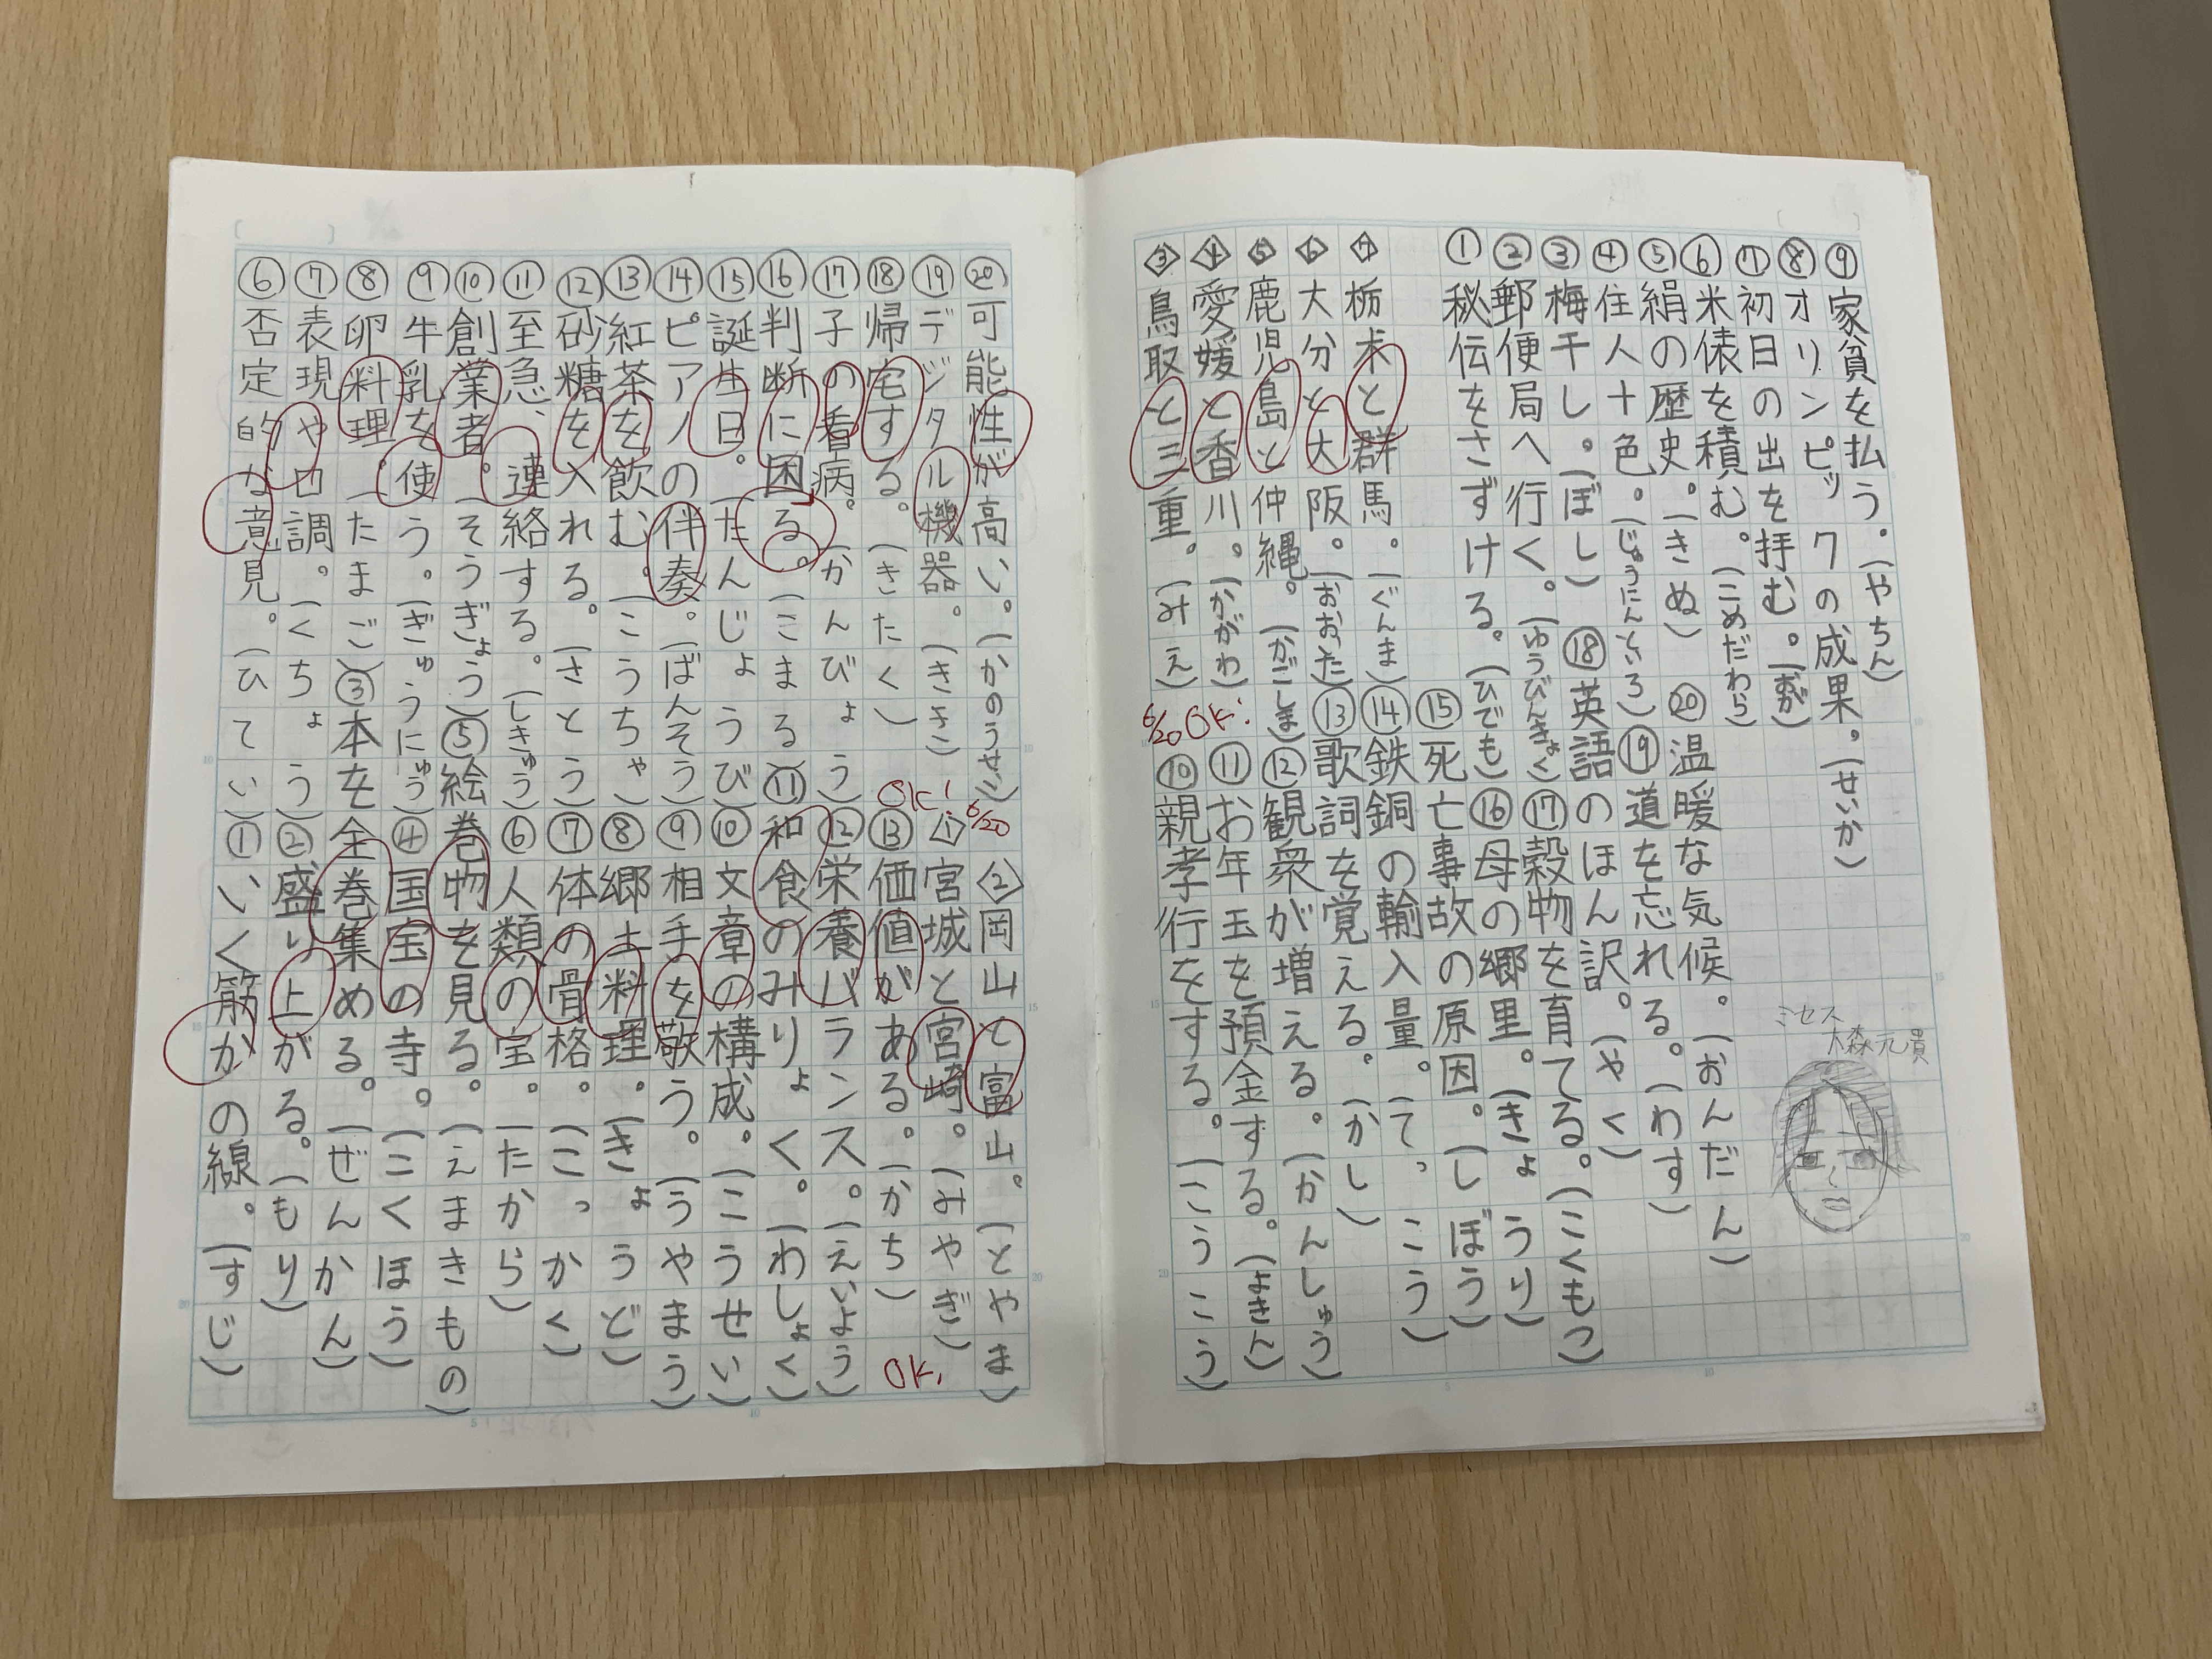 ⑥否定的な意見。(ひてい)
⑦表現や口調。(くちょう)
⑧卵料理。(たまご)
⑨牛乳を使う。(ぎゅうにゅう)
⑩創業者。(そうぎょう)
⑪至急、連絡する。(しきゅう)
⑫砂糖を入れる。(さとう)
⑬紅茶を飲む。(こうちゃ)
⑭ピアノの伴奏。(ばんそう)
⑮誕生日。(たんじょうび)
⑯判断に困る。(こまる)
⑰子の看病。(かんびょう)
⑱帰宅する。(きたく)
⑲デジタル機器。(きき)
⑳可能性が高い。(かのうせい)
①いく筋かの線。(すじ)
②盛り上がる。(もり)
③本を全巻集める。(ぜんかん)
④国宝の寺。(こくほう)
⑤絵巻物を見る。(えまきもの)
⑥人類の宝。(たから)
⑦体の骨格。(こっかく)
⑧郷土料理。(きょうど)
⑨相手を敬う。(うやまう)
⑩文章の構成。(こうせい)
⑪和食のみりょく。(わしょく)
⑫栄養バランス。(えいよう)
⑬価値がある。(かち)
OK!
6/20
OK!
1 宮城と宮崎。(みやぎ)
2 岡山と富山。(とやま)
3 鳥取と三重。(みえ)
4 愛媛と香川。(かがわ)
5 鹿児島と沖縄。(かごしま)
6 大分と大阪。(おおいた)
7 栃木と群馬。(ぐんま)
6/20 OK!
①秘伝をさずける。(ひでん)
②郵便局へ行く。(ゆうびんきょく)
③梅干し。(ぼし)
④住人十色。(じゅうにんといろ)
⑤絹の歴史。(きぬ)
⑥米俵を積む。(こめだわら)
⑦初日の出を拝む。(おが)
⑧オリンピックの成果。(せいか)
⑨家賃を払う。(やちん)
⑩親孝行をする。(こうこう)
⑪お年玉を預金する。(よきん)
⑫観衆が増える。(かんしゅう)
⑬歌詞を覚える。(かし)
⑭鉄銅の輸入量。(てっこう)
⑮死亡事故の原因。(しぼう)
⑯母の郷里。(きょうり)
⑰穀物を育てる。(こくもつ)
⑱英語のほん訳。(やく)
⑲道を忘れる。(わす)
⑳温暖な気候。(おんだん)
ミセス
大森元貴